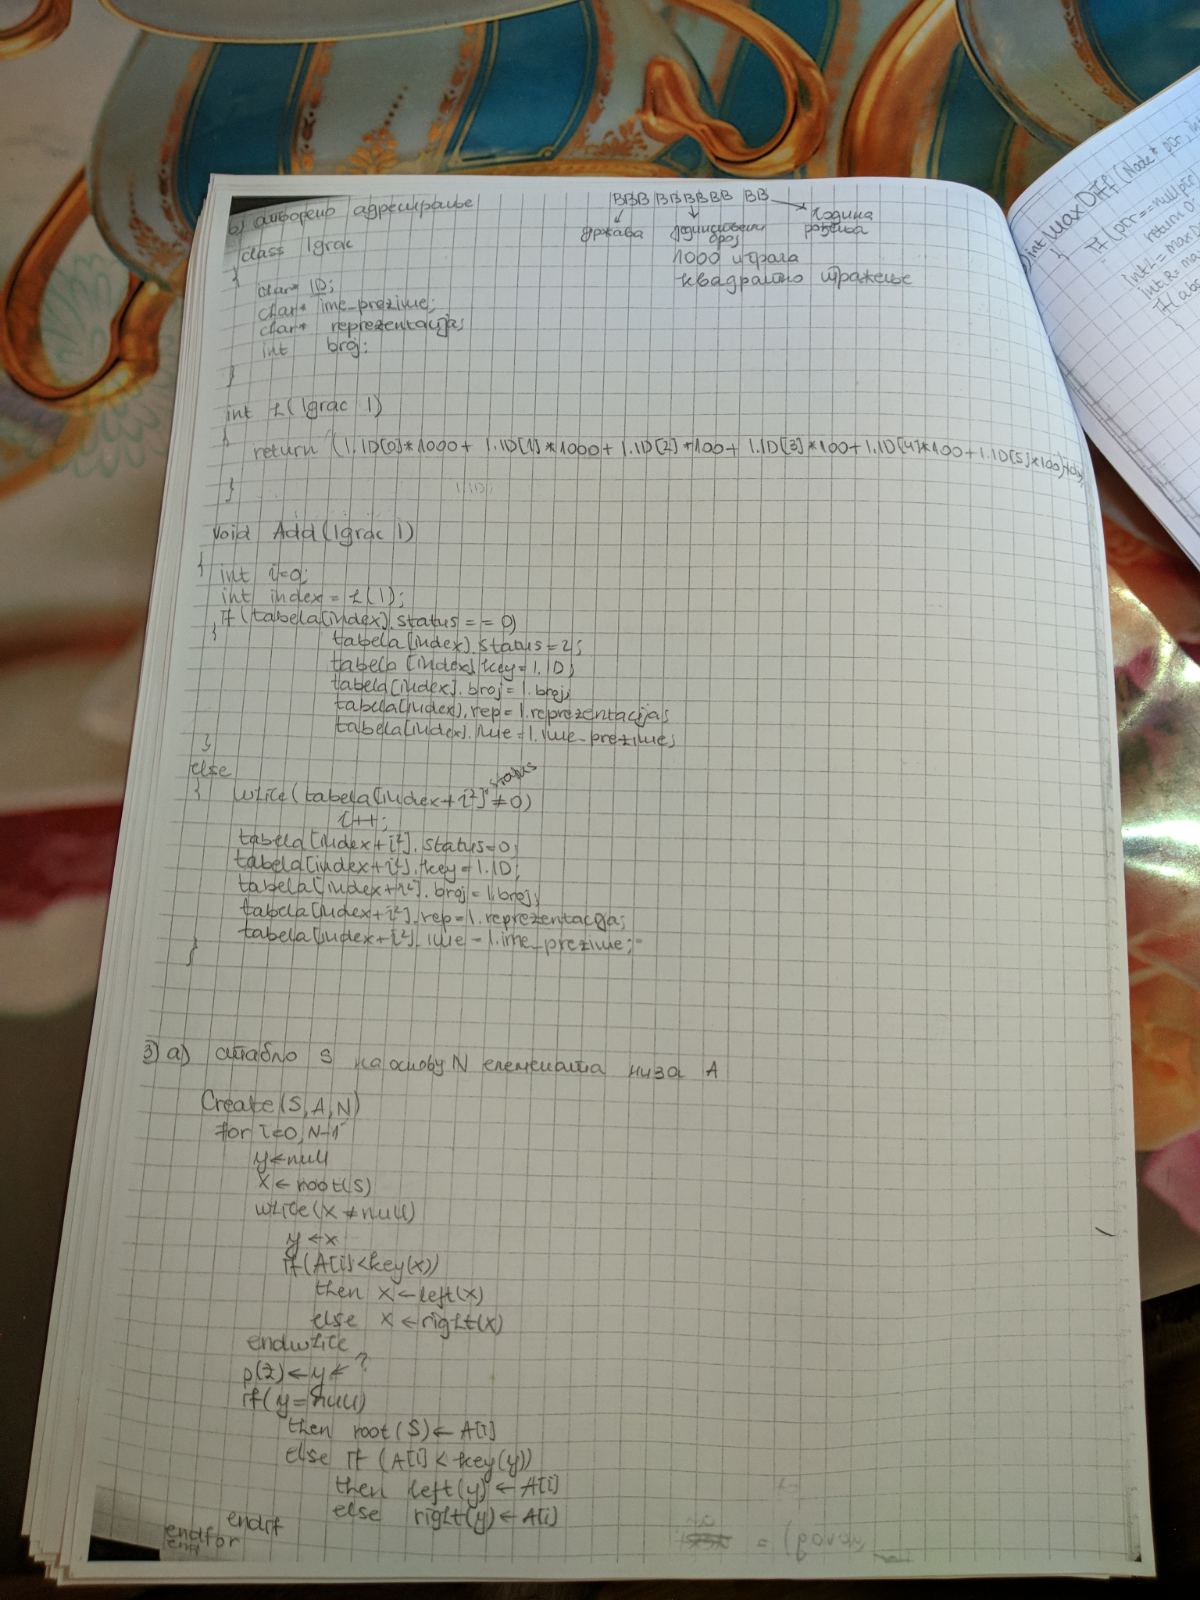 б) отворено адресирање
BBB BBBBBB BB
држава јединствени број година рођења
1000 играча
квадратно тражење
class Igrac
{
char* ID;
char* ime_prezime;
char* reprezentacija;
int broj;
}
int h(Igrac I)
{
return (I.ID[0]*1000+ I.ID[1]*1000+ I.ID[2]*100+ I.ID[3]*100+ I.ID[4]*100+ I.ID[5]*100)
}
Void Add(Igrac I)
{ int i=0;
int index = h(I);
if (tabela[index].status == 0)
{ tabela[index].status=2;
tabela[index].key=I.ID;
tabela[index].broj=I.broj;
tabela[index].rep=I.reprezentacija;
tabela[index].ime=I.ime_prezime;
}
else
{ while(tabela[index+i²].status≠0)
i++;
tabela[index+i²].status=0;
tabela[index+i²].key=I.ID;
tabela[index+i²].broj=I.broj;
tabela[index+i²].rep=I.reprezentacija;
tabela[index+i²].ime=I.ime_prezime;
}
3) а) стабло S на основу N елемената низа A
Create(S,A,N)
for i=0,N-1
y←null
x←root(S)
while(x≠null)
y←x
if(A[i]<key(x))
then x←left(x)
else x←right(x)
endwhile
p(z)←y ← ?
if(y=null)
then root(S)←A[i]
else if (A[i]<key(y))
then left(y)←A[i]
else right(y)←A[i]
endif
endfor
int maxDiff(Node* ptr
{
if(ptr==nullptr
return 0
int L=maxD
int R=ma
if(abs